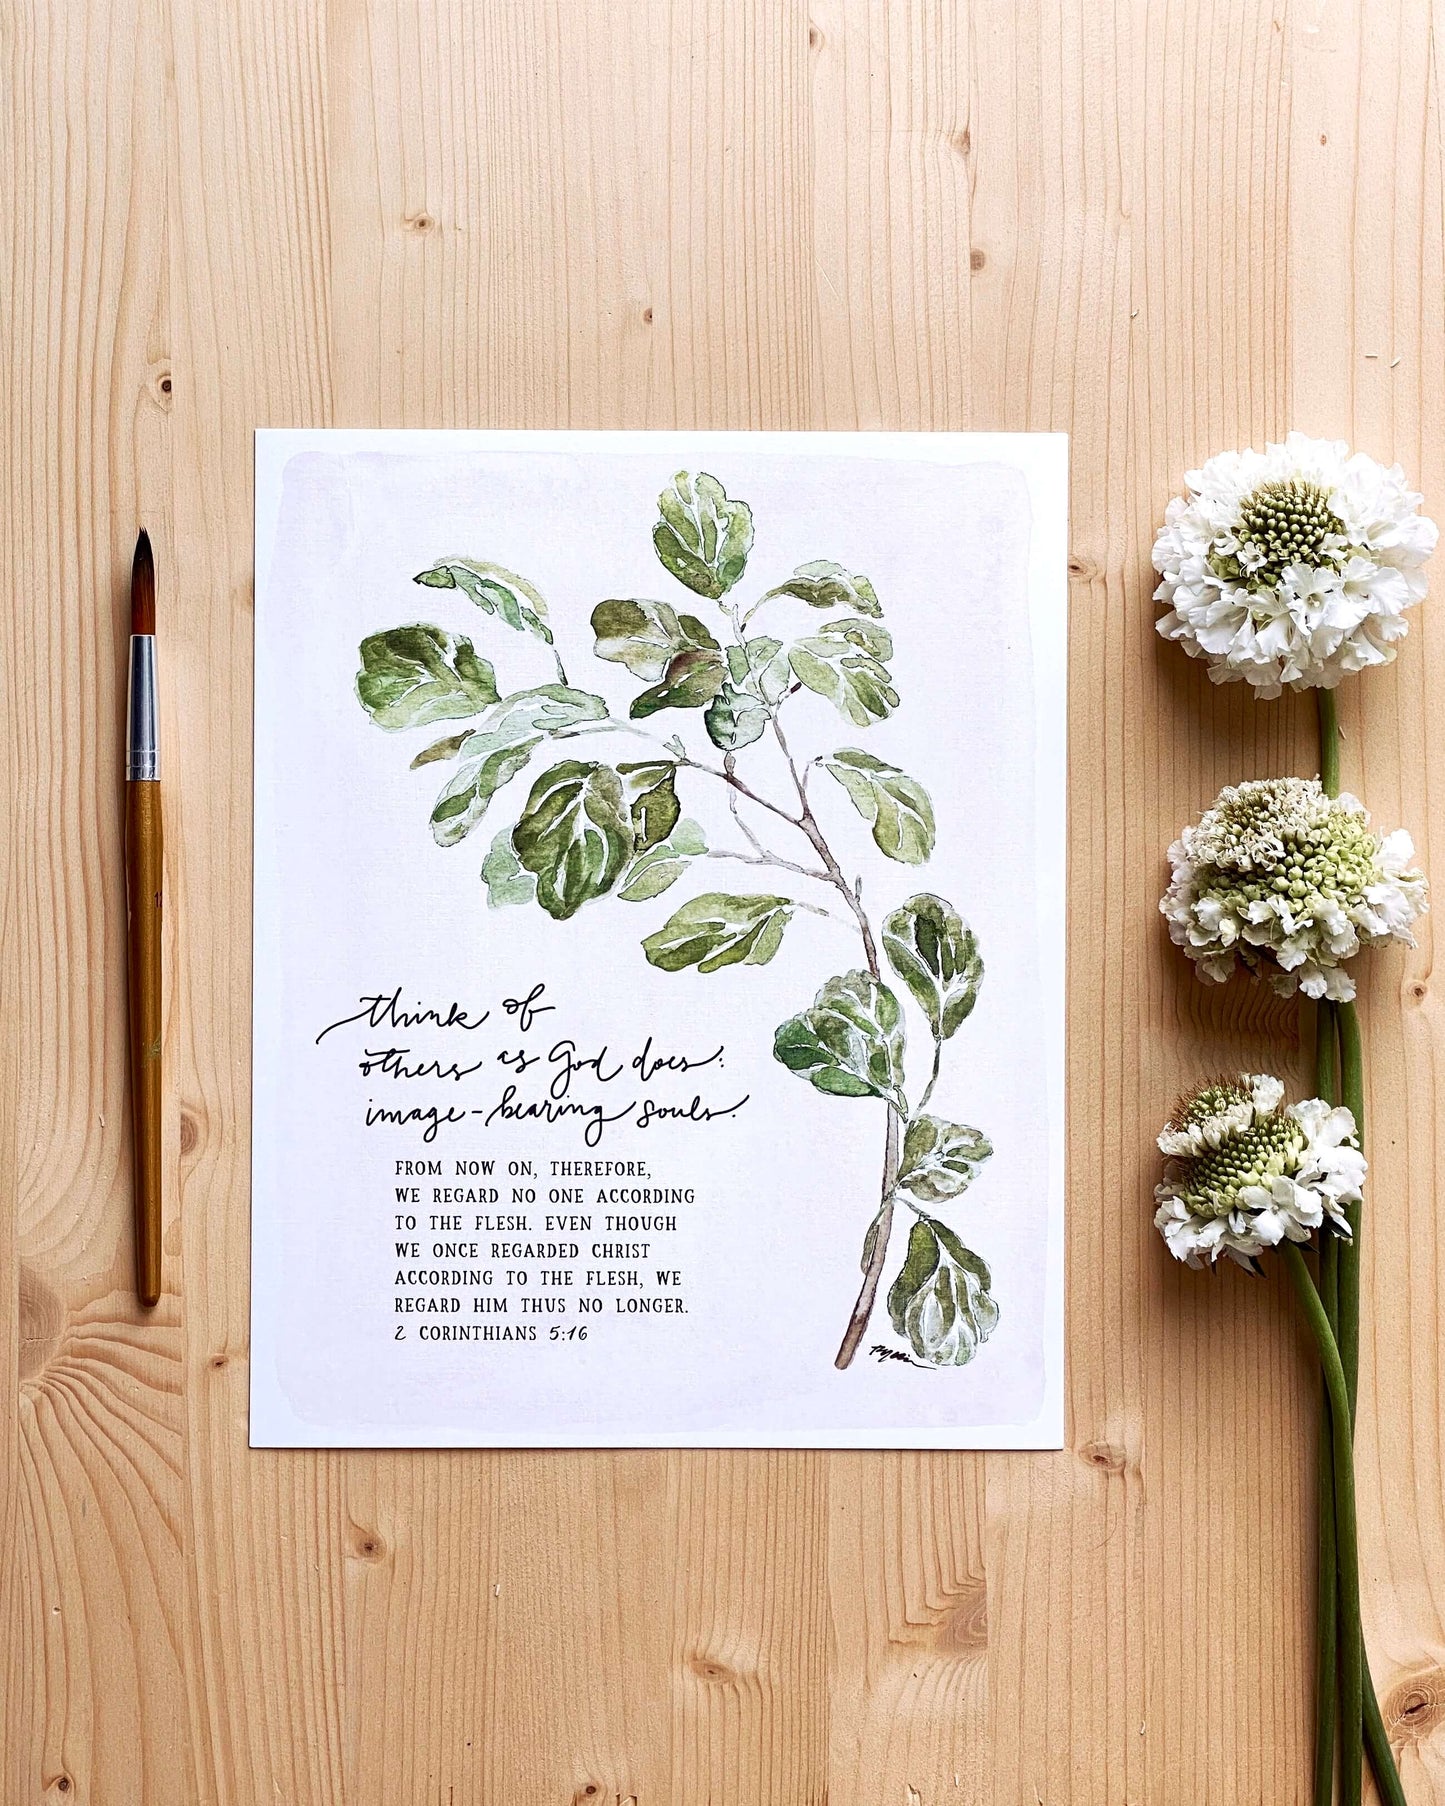 think of
others as God does:
image-bearing souls.
FROM NOW ON, THEREFORE,
WE REGARD NO ONE ACCORDING
TO THE FLESH. EVEN THOUGH
WE ONCE REGARDED CHRIST
ACCORDING TO THE FLESH, WE
REGARD HIM THUS NO LONGER.
2 CORINTHIANS 5:16